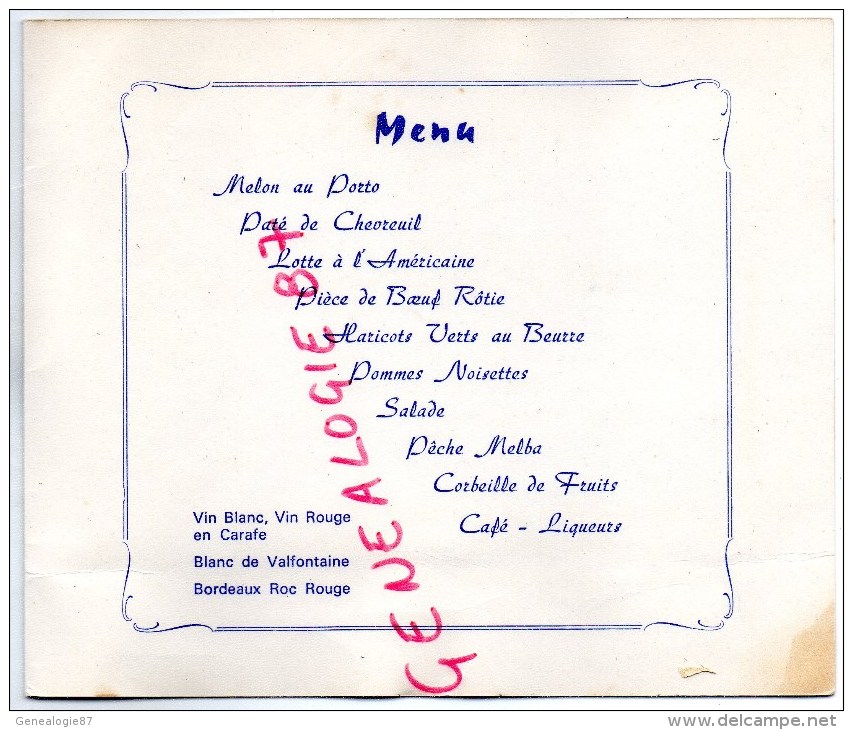 Menu
Melon au Porto
Paté de Chevreuil
Lotte à l'Américaine
Pièce de Bœuf Rôtie
Haricots Verts au Beurre
Pommes Noisettes
Salade
Pêche Melba
Corbeille de Fruits
Café - Liqueurs
Vin Blanc, Vin Rouge
en Carafe
Blanc de Valfontaine
Bordeaux Roc Rouge
GENEALOGIE 87
Genealogie87
www.delcampe.net